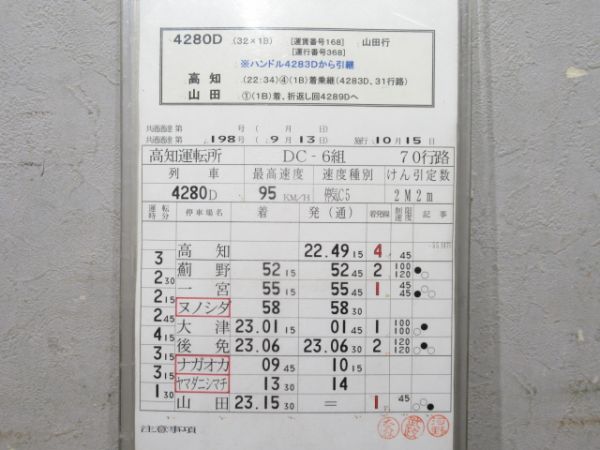 4280D (32×1B) [運賃番号168] 山田行
[運行番号368]
※ハンドル4283Dから引継
高知 (22:34)④(1B)着乗継(4283D、31行路)
山田 ①(1B)着、折返し回4289Dへ
共通達第 号( 月 日)
共通達第 198 号(9月13日) 施行 10月15日
高知運転所 DC-6組 70行路
列車 最高速度 速度種別 けん引定数
4280D 95 KM/H 停気C5 2M2m
運転時分 停車場名 着 発(通) 着発線 制限速度 記事
高知 22.49 15 4 45
3
薊野 52 15 52 45 2 100 120
2 30
一宮 55 15 55 45 1 45 45
2 15
ヌノシダ 58 58 30
2 45
大津 23.01 15 01 45 1 100 100
4 15
後免 23.06 23.06 30 2 120 120
3 15
ナガオカ 09 45 10 15
3 15
ヤマダニシマチ 13 30 14
1 30
山田 23.15 30 = 1 45
注意事項